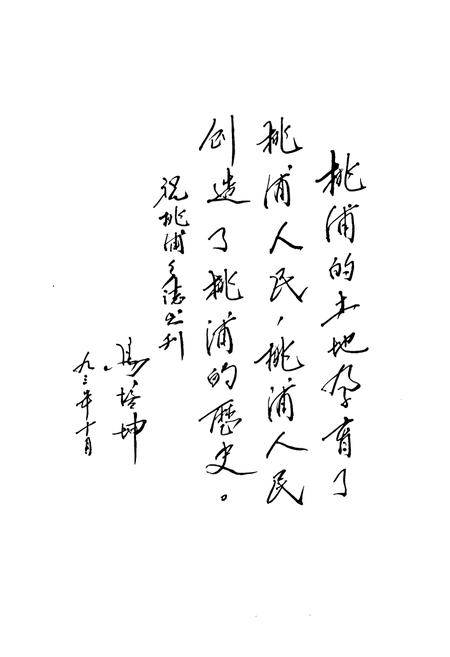 桃浦的土地孕育了
桃浦人民，桃浦人民
创造了桃浦的歷史。
祝桃浦乡誌出刊
馬培坤
九三年十月